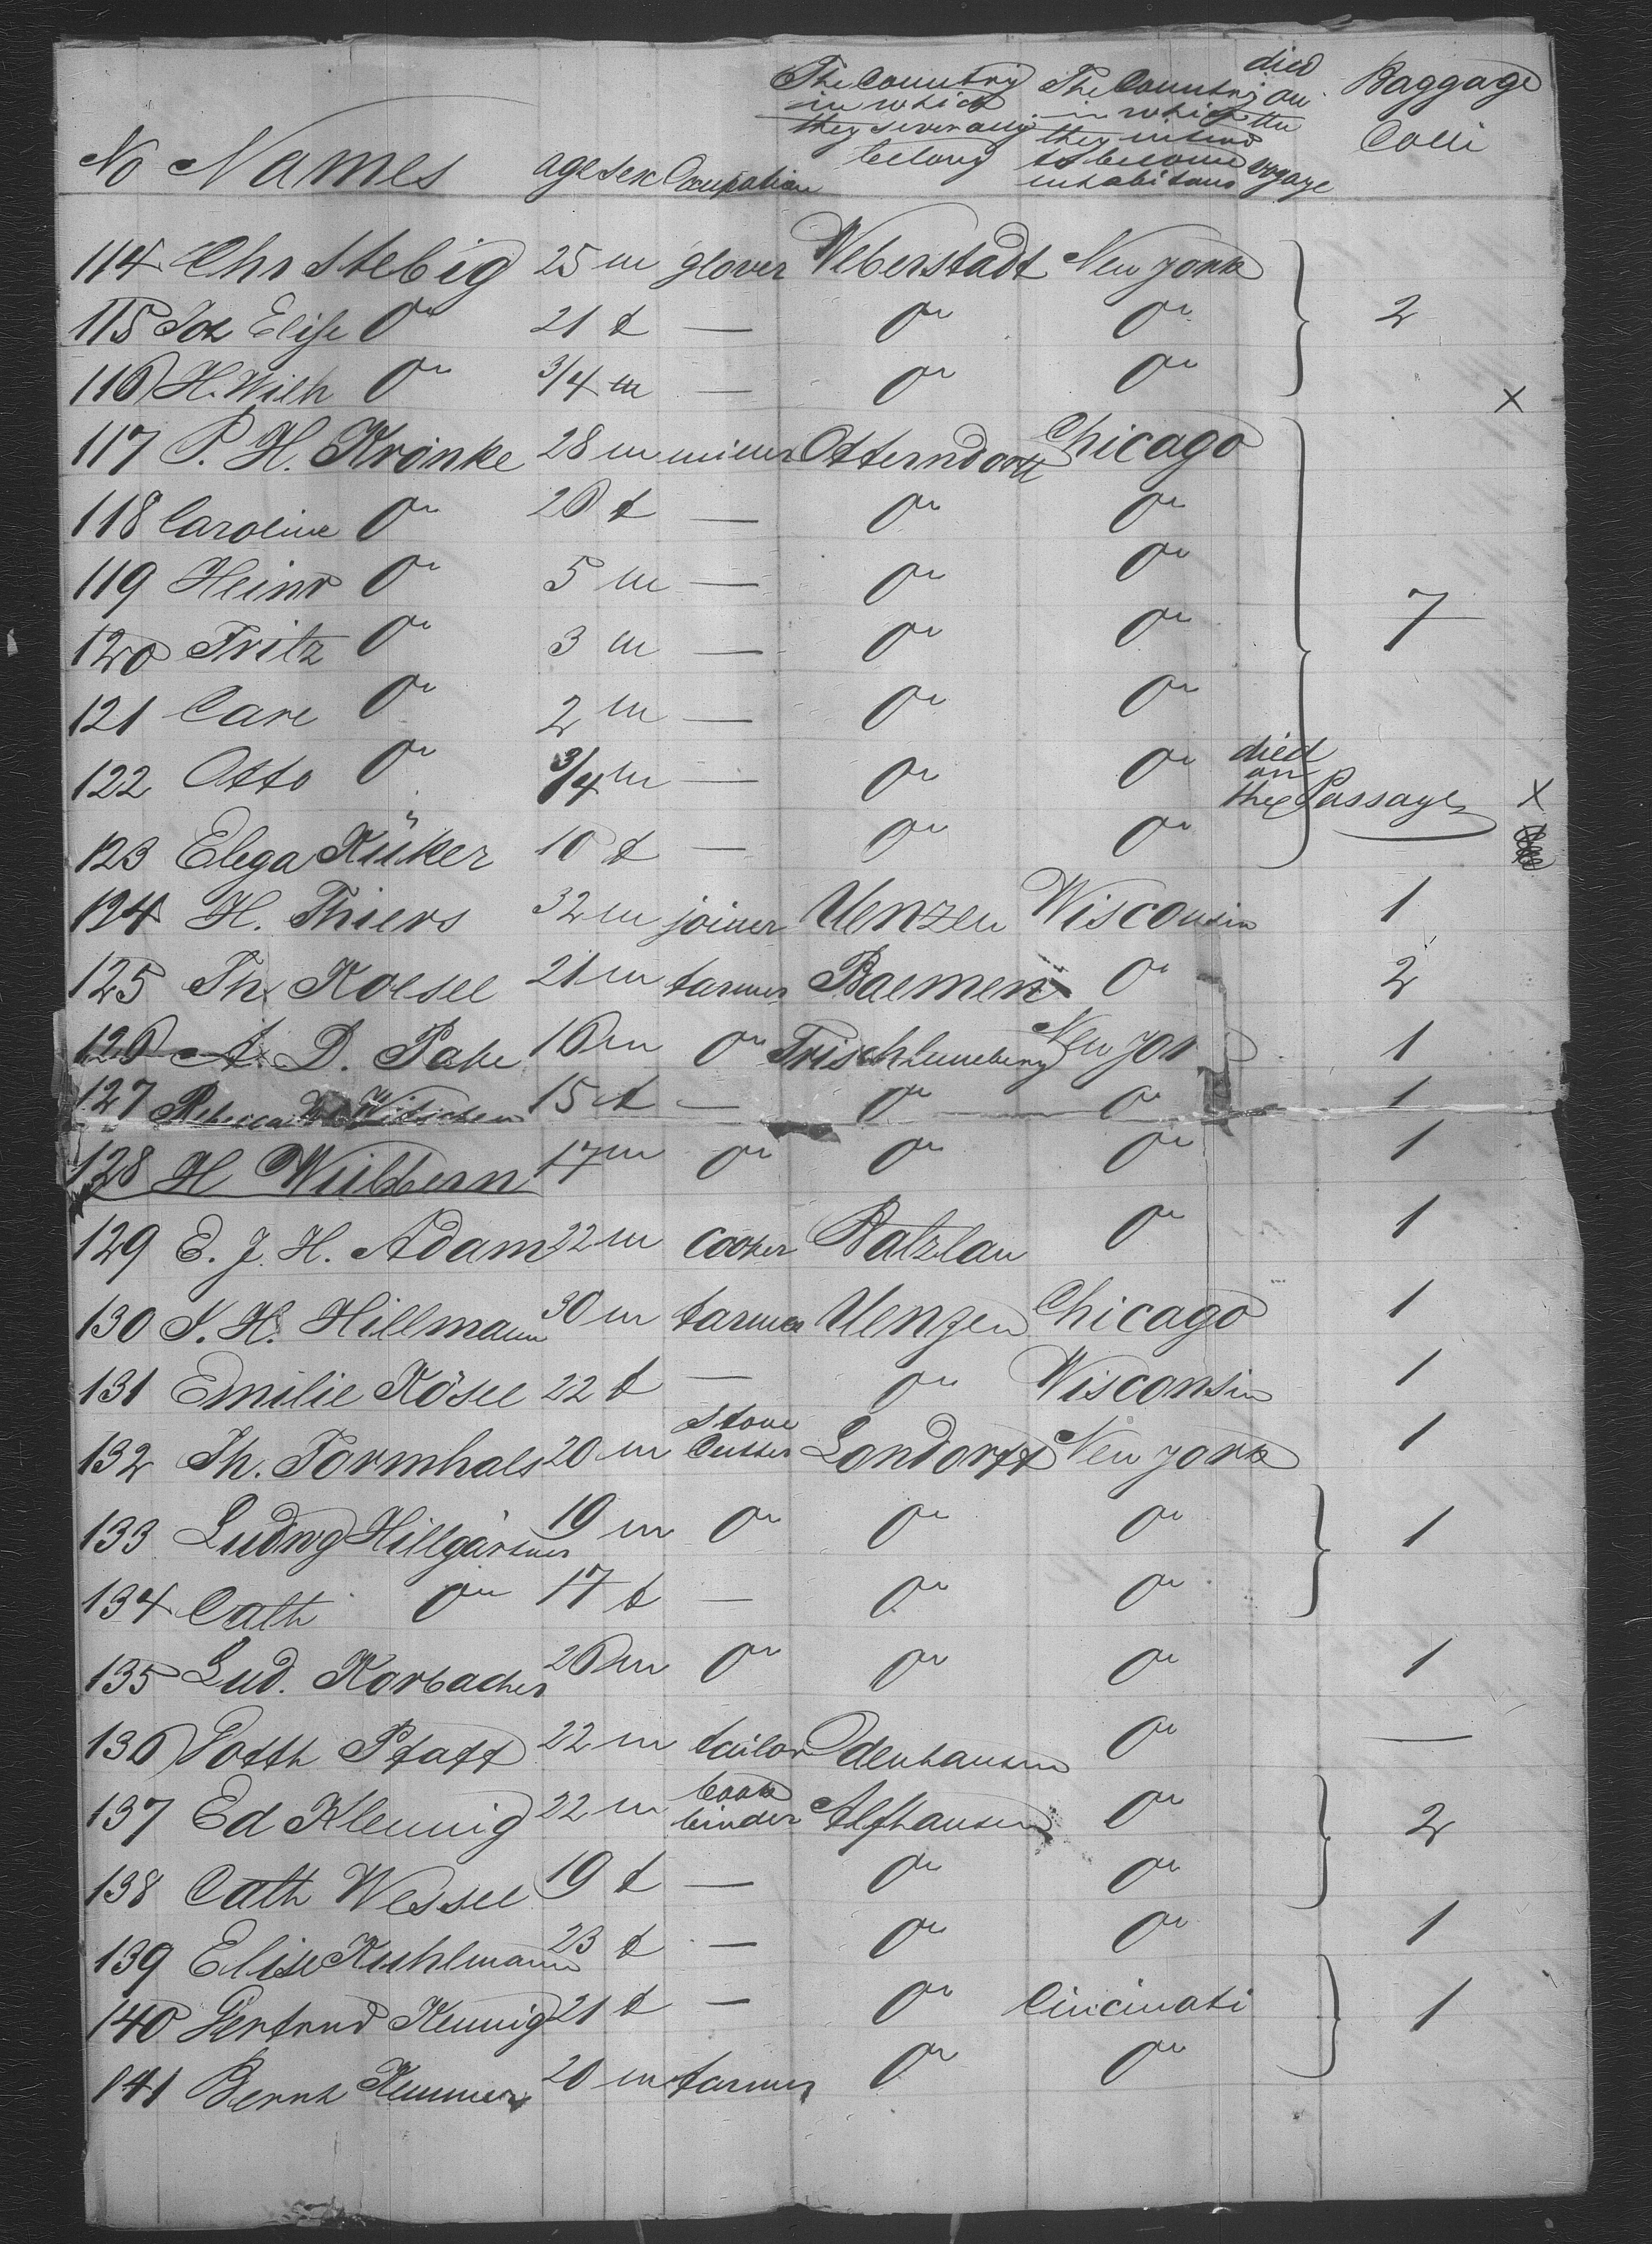 No Names age sex Occupation The Country in which they severally belong The Country in which they intend to become inhabitans died on the voyage Baggage Colli
114 Chr Stebig 25 m glover Weberstadt New York
115 Joh Elise do 21 f — do do 2
116 H. Wilh do 3/4 m — do do
117 P. H. Krönke 28 m miner Otterndorff Chicago
118 Caroline do 26 f — do do
119 Heinr do 5 m — do do
120 Fritz do 3 m — do do 7
121 Carl do 2 m — do do
122 Otto do 3/4 m — do do died on the Passage X
123 Elega Küker 10 f — do do
124 H. Thiers 32 m joiner Uenzen Wisconsin 1
125 Th. Koesel 21 m farmer Baemen do 2
126 A. D. Pape 16 m do Frischluneberg New York 1
127 Rebecca Witschen 15 f — do do 1
128 H Wülbern 17 m do do do 1
129 E. J. H. Adam 22 m cooper Batzlau do 1
130 J. H. Hillmann 30 m farmer Uenzen Chicago 1
131 Emilie Kösel 22 f — do Wisconsin 1
132 Th. Formhals 20 m Stone Cutter Londorff New York 1
133 Ludwg Hillgärtner 19 m do do do 1
134 Cath do 17 f — do do
135 Lud. Korbacher 26 m do do do 1
136 Gotth Pfaff 22 m tailor Odenhausen do —
137 Ed Klennig 22 m book binder Alfhausen do 2
138 Cath Wessel 19 f — do do
139 Elise Kuhlmann 23 f — do do 1
140 Gertrud Kennig 21 f — do Cincinati 1
141 Bernh Kemmer 20 m farmer do do